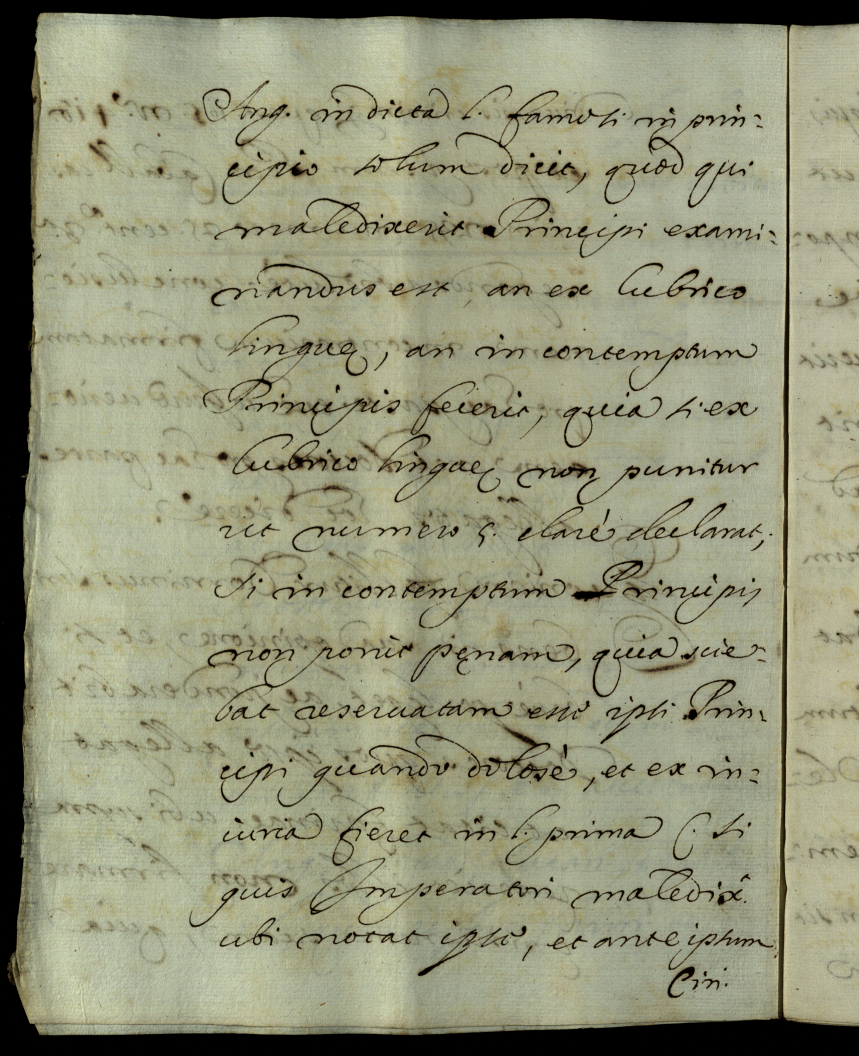 Ang. in dicta l. famosi in prin:
cipio solum dicit, quod qui
maledixerit Principi exami:
nandus est, an ex lubrico
linguę, an in contemptum
Principis fecerit, quia si ex
lubrico linguę non punitur
ut numero 5. clarè declarat;
Si in contemptum Principis
non ponit pęnam, quia scie:
bat reseruatam esse ipsi Prin:
cipi quando dolosè, et ex in:
iuria fieret in l. prima C. si
quis Imperatori maledix.
ubi notat ipse, et ante ipsum
Cin.